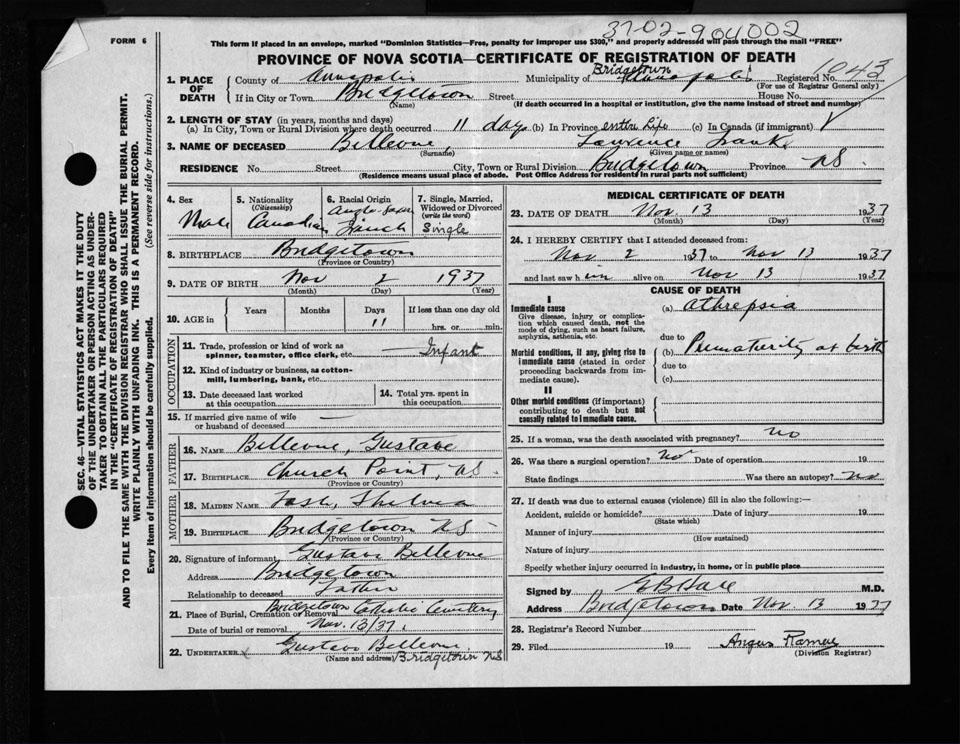 37-02-904002
FORM 6
This form if placed in an envelope, marked "Dominion Statistics—Free, penalty for improper use $300," and properly addressed will pass through the mail "FREE"
PROVINCE OF NOVA SCOTIA—CERTIFICATE OF REGISTRATION OF DEATH
SEC. 46—VITAL STATISTICS ACT MAKES IT THE DUTY
OF THE UNDERTAKER OR PERSON ACTING AS UNDER-
TAKER TO OBTAIN ALL THE PARTICULARS REQUIRED
IN THE "CERTIFICATE OF REGISTRATION OF DEATH"
AND TO FILE THE SAME WITH THE DIVISION REGISTRAR WHO SHALL ISSUE THE BURIAL PERMIT.
WRITE PLAINLY WITH UNFADING INK. THIS IS A PERMANENT RECORD.
Every item of information should be carefully supplied. (See reverse side for instructions.)
1. PLACE OF DEATH
County of Annapolis Municipality of Bridgetown Annapolis Registered No. 1043
(For use of Registrar General only)
If in City or Town Bridgetown Street House No.
(Name) (If death occurred in a hospital or institution, give the name instead of street and number)
2. LENGTH OF STAY (in years, months and days)
(a) In City, Town or Rural Division where death occurred 11 days (b) In Province entire life (c) In Canada (if immigrant)
3. NAME OF DECEASED Bellevue, Laurence
(Surname) (Given name or names)
RESIDENCE No. Street City, Town or Rural Division Bridgetown Province NS
(Residence means usual place of abode. Post Office Address for residents in rural parts not sufficient)
4. Sex
Male
5. Nationality
(Citizenship)
Canadian
6. Racial Origin
French
7. Single, Married,
Widowed or Divorced
(write the word)
Single
8. BIRTHPLACE Bridgetown
(Province or Country)
9. DATE OF BIRTH Nov 2 1937
(Month) (Day) (Year)
10. AGE in Years Months Days If less than one day old
11 hrs. or min.
OCCUPATION
11. Trade, profession or kind of work as
spinner, teamster, office clerk, etc. Infant
12. Kind of industry or business, as cotton-
mill, lumbering, bank, etc.
13. Date deceased last worked
at this occupation
14. Total yrs. spent in
this occupation
15. If married give name of wife
or husband of deceased
FATHER
16. NAME Bellevue, Gustave
17. BIRTHPLACE Church Point, NS.
(Province or Country)
MOTHER
18. MAIDEN NAME Thelma
19. BIRTHPLACE Bridgetown NS
(Province or Country)
20. Signature of informant Gustave Bellevue
Address Bridgetown
Relationship to deceased Father
21. Place of Burial, Cremation or Removal Bridgetown Catholic Cemetery
Date of burial or removal Nov. 13/37
22. UNDERTAKER Gustave Bellevue
(Name and address) Bridgetown NS
MEDICAL CERTIFICATE OF DEATH
23. DATE OF DEATH Nov. 13 1937
(Month) (Day) (Year)
24. I HEREBY CERTIFY that I attended deceased from:
Nov 2 1937 to Nov 13 1937
and last saw him alive on Nov 13 1937
CAUSE OF DEATH
I
Immediate cause
Give disease, injury or complica-
tion which caused death, not the
mode of dying, such as heart failure,
asphyxia, asthenia, etc.
(a) Athrepsia
due to
Morbid conditions, if any, giving rise to
immediate cause (stated in order
proceeding backwards from im-
mediate cause).
(b) Prematurity at birth
due to
(c)
II
Other morbid conditions (if important)
contributing to death but not
causally related to immediate cause.
25. If a woman, was the death associated with pregnancy? no
26. Was there a surgical operation? No Date of operation 19
State findings Was there an autopsy? No
27. If death was due to external causes (violence) fill in also the following:—
Accident, suicide or homicide? Date of injury 19
(State which)
Manner of injury
(How sustained)
Nature of injury
Specify whether injury occurred in industry, in home, or in public place
Signed by M.D.
Address Bridgetown Date Nov 13 1937
28. Registrar's Record Number
29. Filed 19 Angus
(Division Registrar)